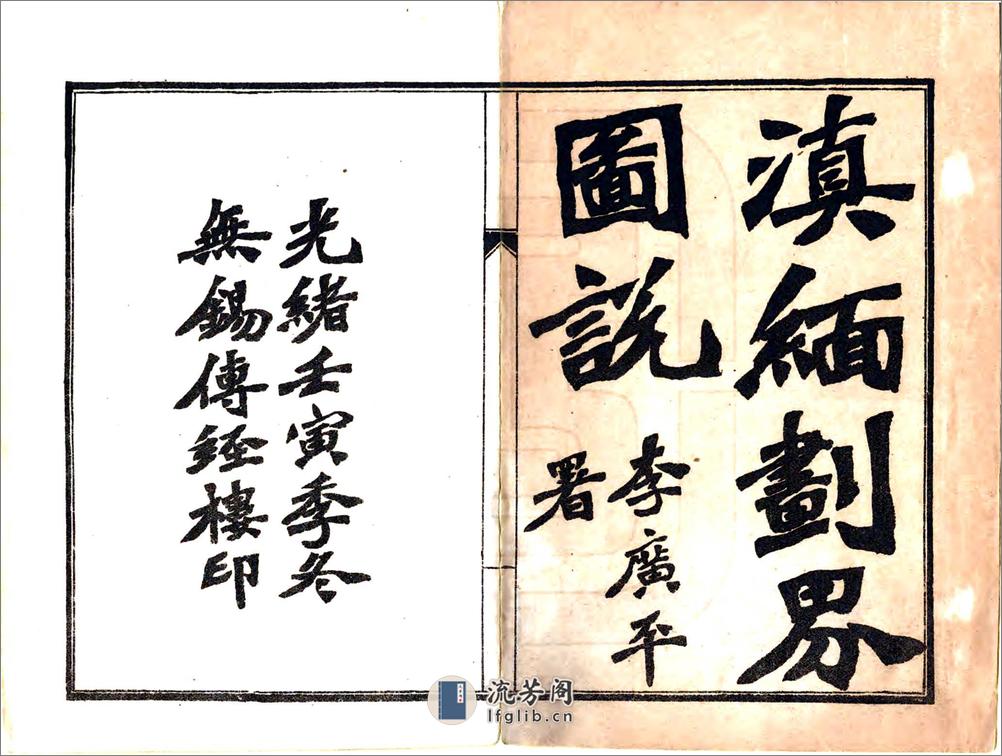 滇緬劃界
圖説
李廣平
署
光緒壬寅季冬
無錫傳經樓印
流芳阁
lfglib.cn